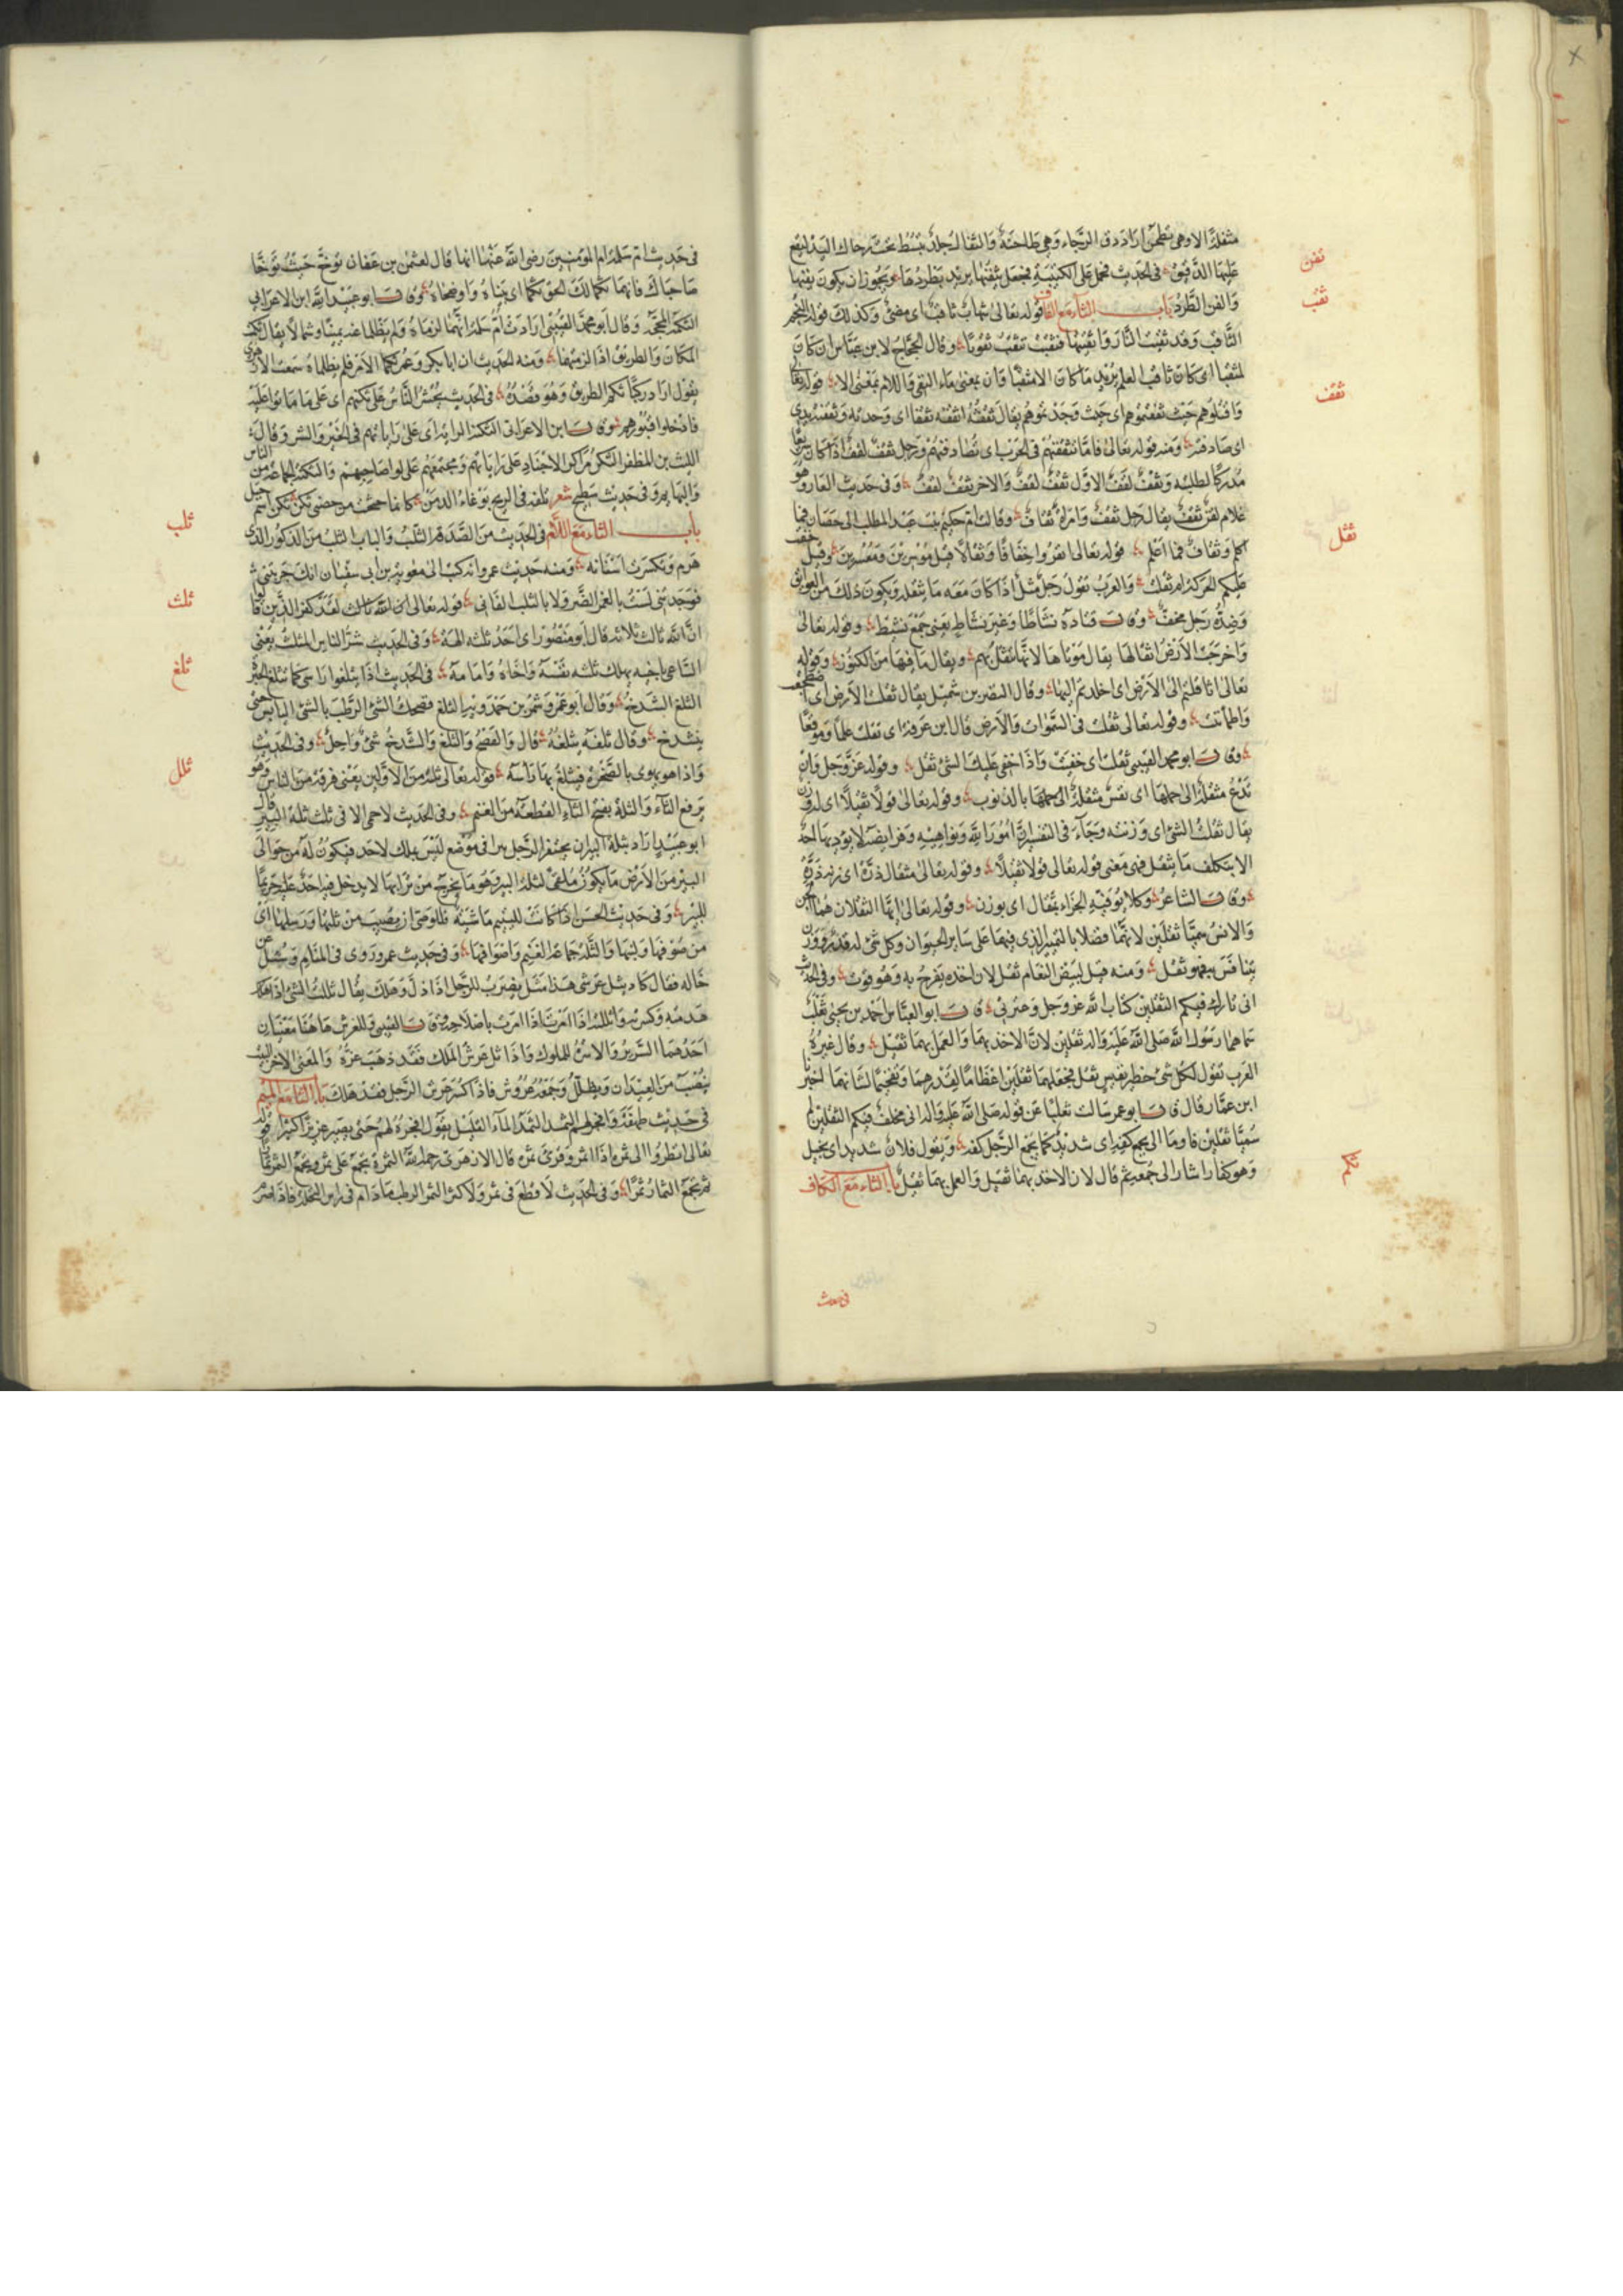 مثقلة الا وهي تطحن اراد دق الرجاء وهي طاحنة والثفال جلد يبسط تحت رحا اليد ليقع
عليها الدقيق في الحديث فحمل على الكتيبة فجعل يثفنها يريد يطردها ويجوز ان يكون يفنها
والفن الطرد باب الثاء مع القاف قوله تعالى شهاب ثاقب اى مضئ وكذلك قوله النجم
الثاقب وقد ثقبت النار واثقبتها فثقبت تثقب ثقوبا وقال الحجاج لابن عباس ان كان
لمثقبا اى كان ثاقب العلم يريد ما كان الا مثقبا وان بمعنى ماء النفى واللام بمعنى الا قوله تعالى
واقتلوهم حيث ثقفتموهم اى حيث وجدتموهم يقال ثقفته اثقفه ثقفا اى وجدته وثقفته يدى
اى صادفته ومنه قوله تعالى فاما تثقفنهم فى الحرب اى تصادفنهم ورجل ثقف لقف اذا كان سريعا
مدركا لطلبه وثقف لقف الاول ثقف لقف والاخر ثقف لقف وفى حديث الغار وهو
غلام لقن ثقف يقال رجل ثقف وامراة ثقاف وقالت ام حكيم بنت عبد المطلب انى حصان فما
اكلم وثقاف فما اعلم قوله تعالى انفروا خفافا وثقالا قيل موسرين ومعسرين وقيل خفت
عليكم الحركة ام ثقلت والعرب تقول رجل مثقل اذا كان معه ما يثقله ويكون ذلك من العوائق
وضده رجل مخف وقال قتادة نشاطا وغير نشاط يعنى جمع نشيط وقوله تعالى
واخرجت الارض اثقالها يقال موتاها لانها تثقل بهم ويقال ما فيها من الكنوز وقوله
تعالى اثاقلتم الى الارض اى اخلدتم اليها وقال النضر بن شميل يقال ثقلت الارض اى اضطجعت
واطمأننت وقوله تعالى ثقلت فى السموات والارض قال ابن عرفة اى ثقلت علما وموقعا
وقال ابو محمد القتيبى ثقلت اى خفيت واذا خفى عليك الشئ ثقل وقوله عز وجل وان
تدع مثقلة الى حملها اى نفس مثقلة الى حملها بالذنوب وقوله تعالى قولا ثقيلا اى له وزن
يقال ثقلت الشئ اى وزنته وجاء فى التفسير انه اوامر الله ونواهيه وفرايضه لا يؤديها احد
الا يتكلف ما يثقل فهى معنى قوله تعالى قولا ثقيلا وقوله تعالى مثقال ذرة اى زنة ذرة
وقال الشاعر وكلا يوفيه الجزاء بمثقال اى بوزن وقوله تعالى ايها الثقلان هما الجن
والانس سميا ثقلين لانهما فضلا بالتمييز الذى فيهما على ساير الحيوان وكل شئ له قدر ووزن
يتنافس فيه فهو ثقل ومنه قيل لبيض النعام ثقل لان اخذه يفرح به وهو قوت وفى الحديث
انى تارك فيكم الثقلين كتاب الله عز وجل وعترتى قال ابو العباس احمد بن يحيى ثعلب
سماهما رسول الله صلى الله عليه واله ثقلين لان الاخذ بهما والعمل بهما ثقيل وقال غيره
العرب تقول لكل شئ خطير نفيس ثقل فجعلهما ثقلين اعظاما لقدرهما وتفخيما لشانهما اخبرنا
ابن عمار قال قال ابو عمر سالت ثعلبا عن قوله صلى الله عليه واله انى مخلف فيكم الثقلين لم
سميا ثقلين فاومأ الى بجمع كفه اى شديد كما يجمع الرجل كفه وتقول فلان شديد اى بخيل
وهو كفا اشار الى جمعه ثم قال لان الاخذ بهما ثقيل والعمل بهما ثقيل باب الثاء مع الكاف
ثفن
ثقب
ثقف
ثقل
ثكم
فى حديث
فى حديث ام سلمة ام المؤمنين رضى الله عنها انها قالت لعثمن بن عفان توخ حيث توخا
صاحباك فانهما ثكما لك الحق ثكما اى بيناه واوضحاه وقال ابو عبد الله ابن الاعرابى
الثكمة المحجة وقال ابو محمد القتيبى ارادت ام سلمة انهما لزماه ولم يظلما عنه يمينا وشمالا يقال ثكمت
المكان والطريق اذا لزمتهما ومنه الحديث ان ابا بكر وعمر ثكما الامر فلم يظلماه سمعت الازهرى
يقول اراد ركبا ثكم الطريق وهو قصده فى الحديث يحشر الناس على ثكنهم اى على ما ماتوا عليه
فادخلوا قبورهم وقال ابن الاعرابى الثكنة الراية اى على راياتهم فى الخير والشر وقال
الليث بن المظفر الثكن مراكز الاجناد على راياتهم ومجتمعهم على لواء صاحبهم والثكنة الجماعة من الناس
والبهايم وفى حديث سطيح شعر تلفه فى الريح بوغاء الدمن كانما حثحث من حضنى ثكن ثكن اسم جبل
باب الثاء مع اللام فى الحديث من الصدقة الثلب والناب الثلب من الذكور الذى
هرم وتكسرت اسنانه ومنه حديث عمرو انه كتب الى معوية بن ابى سفيان انك جربتنى
فوجدتنى لست بالغمر الضرع ولا بالثلب الفانى قوله تعالى ان الله ثالث لقد كفر الذين قالوا
ان الله ثالث ثلاثة قال ابو منصور اى احد ثلثة الهة وفى الحديث شر الناس المثلث يعنى
الساعى باخيه يهلك ثلثة نفسه واخاه وامامه فى الحديث اذا يثلغوا راسى كما تثلغ الخبزة
الثلغ الشدخ وقال ابو عمرو شمر بن حمدويه الثلغ فضخك الشئ الرطب بالشئ اليابس حتى
ينشدخ وقال ثلغه يثلغه قال والفضخ والثلغ والشدخ شئ واحد وفى الحديث
واذا هو يهوى بالصخرة فيثلغ بها راسه قوله تعالى ثلة من الاولين يعنى فرقة من الناس وهو
برفع الثاء والثلة بفتح الثاء القطعة من الغنم وفى الحديث لا حمى الا فى ثلث ثلة البير قال
ابو عبيد اراد بثلة البير ان يحتفر الرجل بيرا فى موضع ليس بملك لاحد فيكون له من حوالى
البير من الارض ما يكون ملقى لثلة البير وهو ما يخرج من ترابها لا يدخل فيه احد عليه حريما
للبير وفى حديث الحسن اذا كانت لليتيم ماشية فللوصى ان يصيب من ثلتها ورسلها اى
من صوفها ولبنها والثلة جماعة الغنم واصوافها وفى حديث عمر وروى فى المنام وسئل عن
حاله فقال كاد يثل عرشى هذا مثل يضرب للرجل اذا ذل وهلك يقال ثللت الشئ اذا
هدمته وكسرته واثللته اذا امرت باصلاحه وقال القتيبى وللعرش هاهنا معنيان
احدهما السرير والاسرة للملوك واذا ثل عرش الملك فقد ذهب عزه والمعنى الاخر البيت
ينصب من العيدان ويظلل وجمعه عروش فاذا كسر عرش الرجل فقد هلك باب الثاء مع الميم
فى حديث طهفة وافجر لهم الثمد الثمد الماء القليل يقول افجره لهم حتى يصير غزيرا كثيرا قوله
تعالى انظروا الى ثمره اذا اثمر وقرئ ثمره قال الازهرى رحمه الله الثمرة تجمع على ثمر ويجمع الثمر ثمارا
ثم تجمع الثمار ثمرا وفى الحديث لا قطع فى ثمر ولا كثر الثمر الرطب ما دام فى راس النخلة فاذا صرم
ثلب
ثلث
ثلغ
ثلل